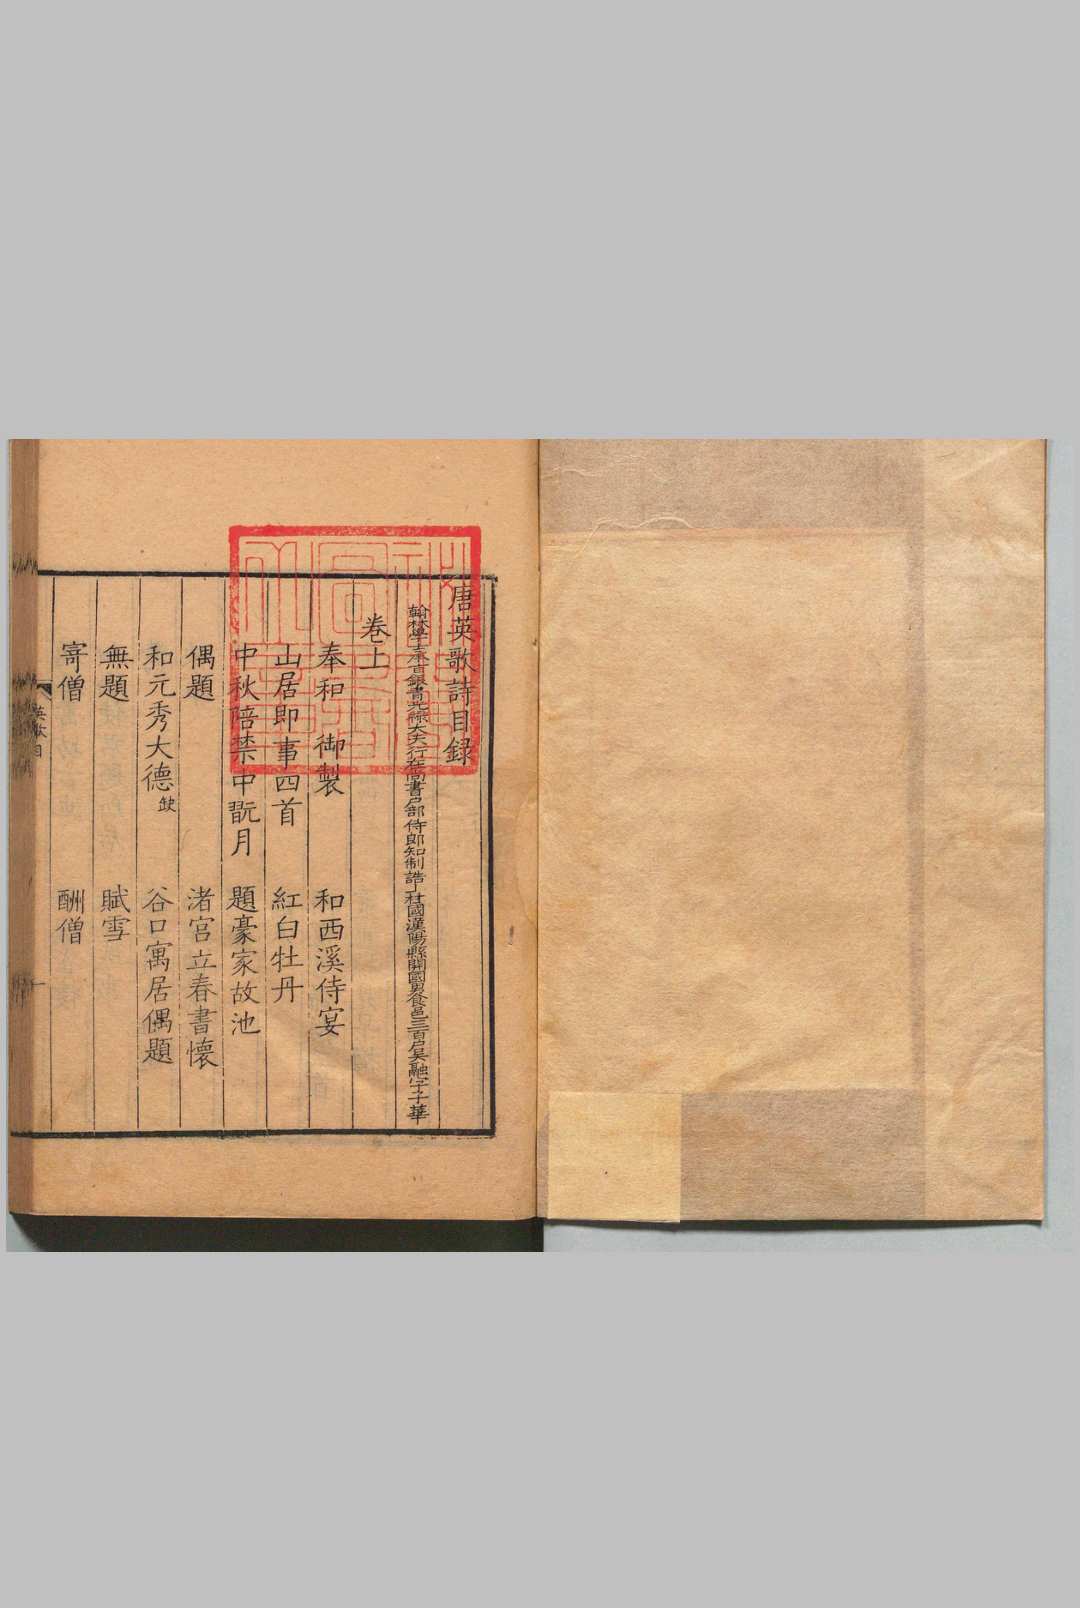 唐英歌詩目録
翰林學士承旨銀青光祿大夫行在尚書戶部侍郎知制誥上柱國漢陽縣開國男食邑三百戶吳融字子華
卷上
奉和　御製　和西溪侍宴
山居即事四首　紅白牡丹
中秋陪禁中翫月　題豪家故池
偶題　渚宮立春書懷
和元秀大德缺　谷口寓居偶題
無題　賦雪
寄僧　酬僧
英歌目